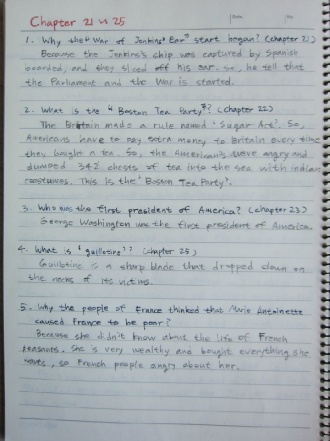 Chapter 21 ~ 25
Date
No.
1. Why the "War of Jenkins' Ear" start began? (chapter 21)
Because the Jenkins's ship was captured by Spanish
boarded, and they sliced off his ear. so, he tell that
the Parliament and the War is started.
2. What is the "Boston Tea Party"? (Chapter 22)
The Britain made a rule named 'Sugar Art'. So,
Americans have to pay extra money to Britain every time
they bought a tea. So, the American's were angry and
dumped 342 chests of tea into the sea with indian
costumes. This is the "Boston Tea Party".
3. Who was the first president of America? (chapter 23)
George Washington was the first president of America.
4. What is 'guillotine'? (chapter 25)
Guillotine is a sharp blade that dropped down on
the necks of its victims.
5. Why the people of France thought that Marie Antoinette
caused France to be poor?
Because she didn't know about the life of French
peasants. She is very wealthy and bought everything she
wants, so French people angry about her.